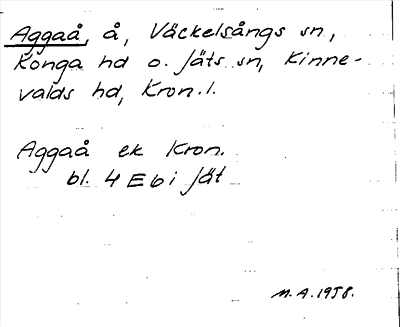 Aggaå, å, Väckelsångs sn.,
Konga hd o. Jäts sn, Kinne-
valds hd, Kron.l.
Aggaå ek Kron.
bl. 4 E 6 i Jät
M.A. 1958.